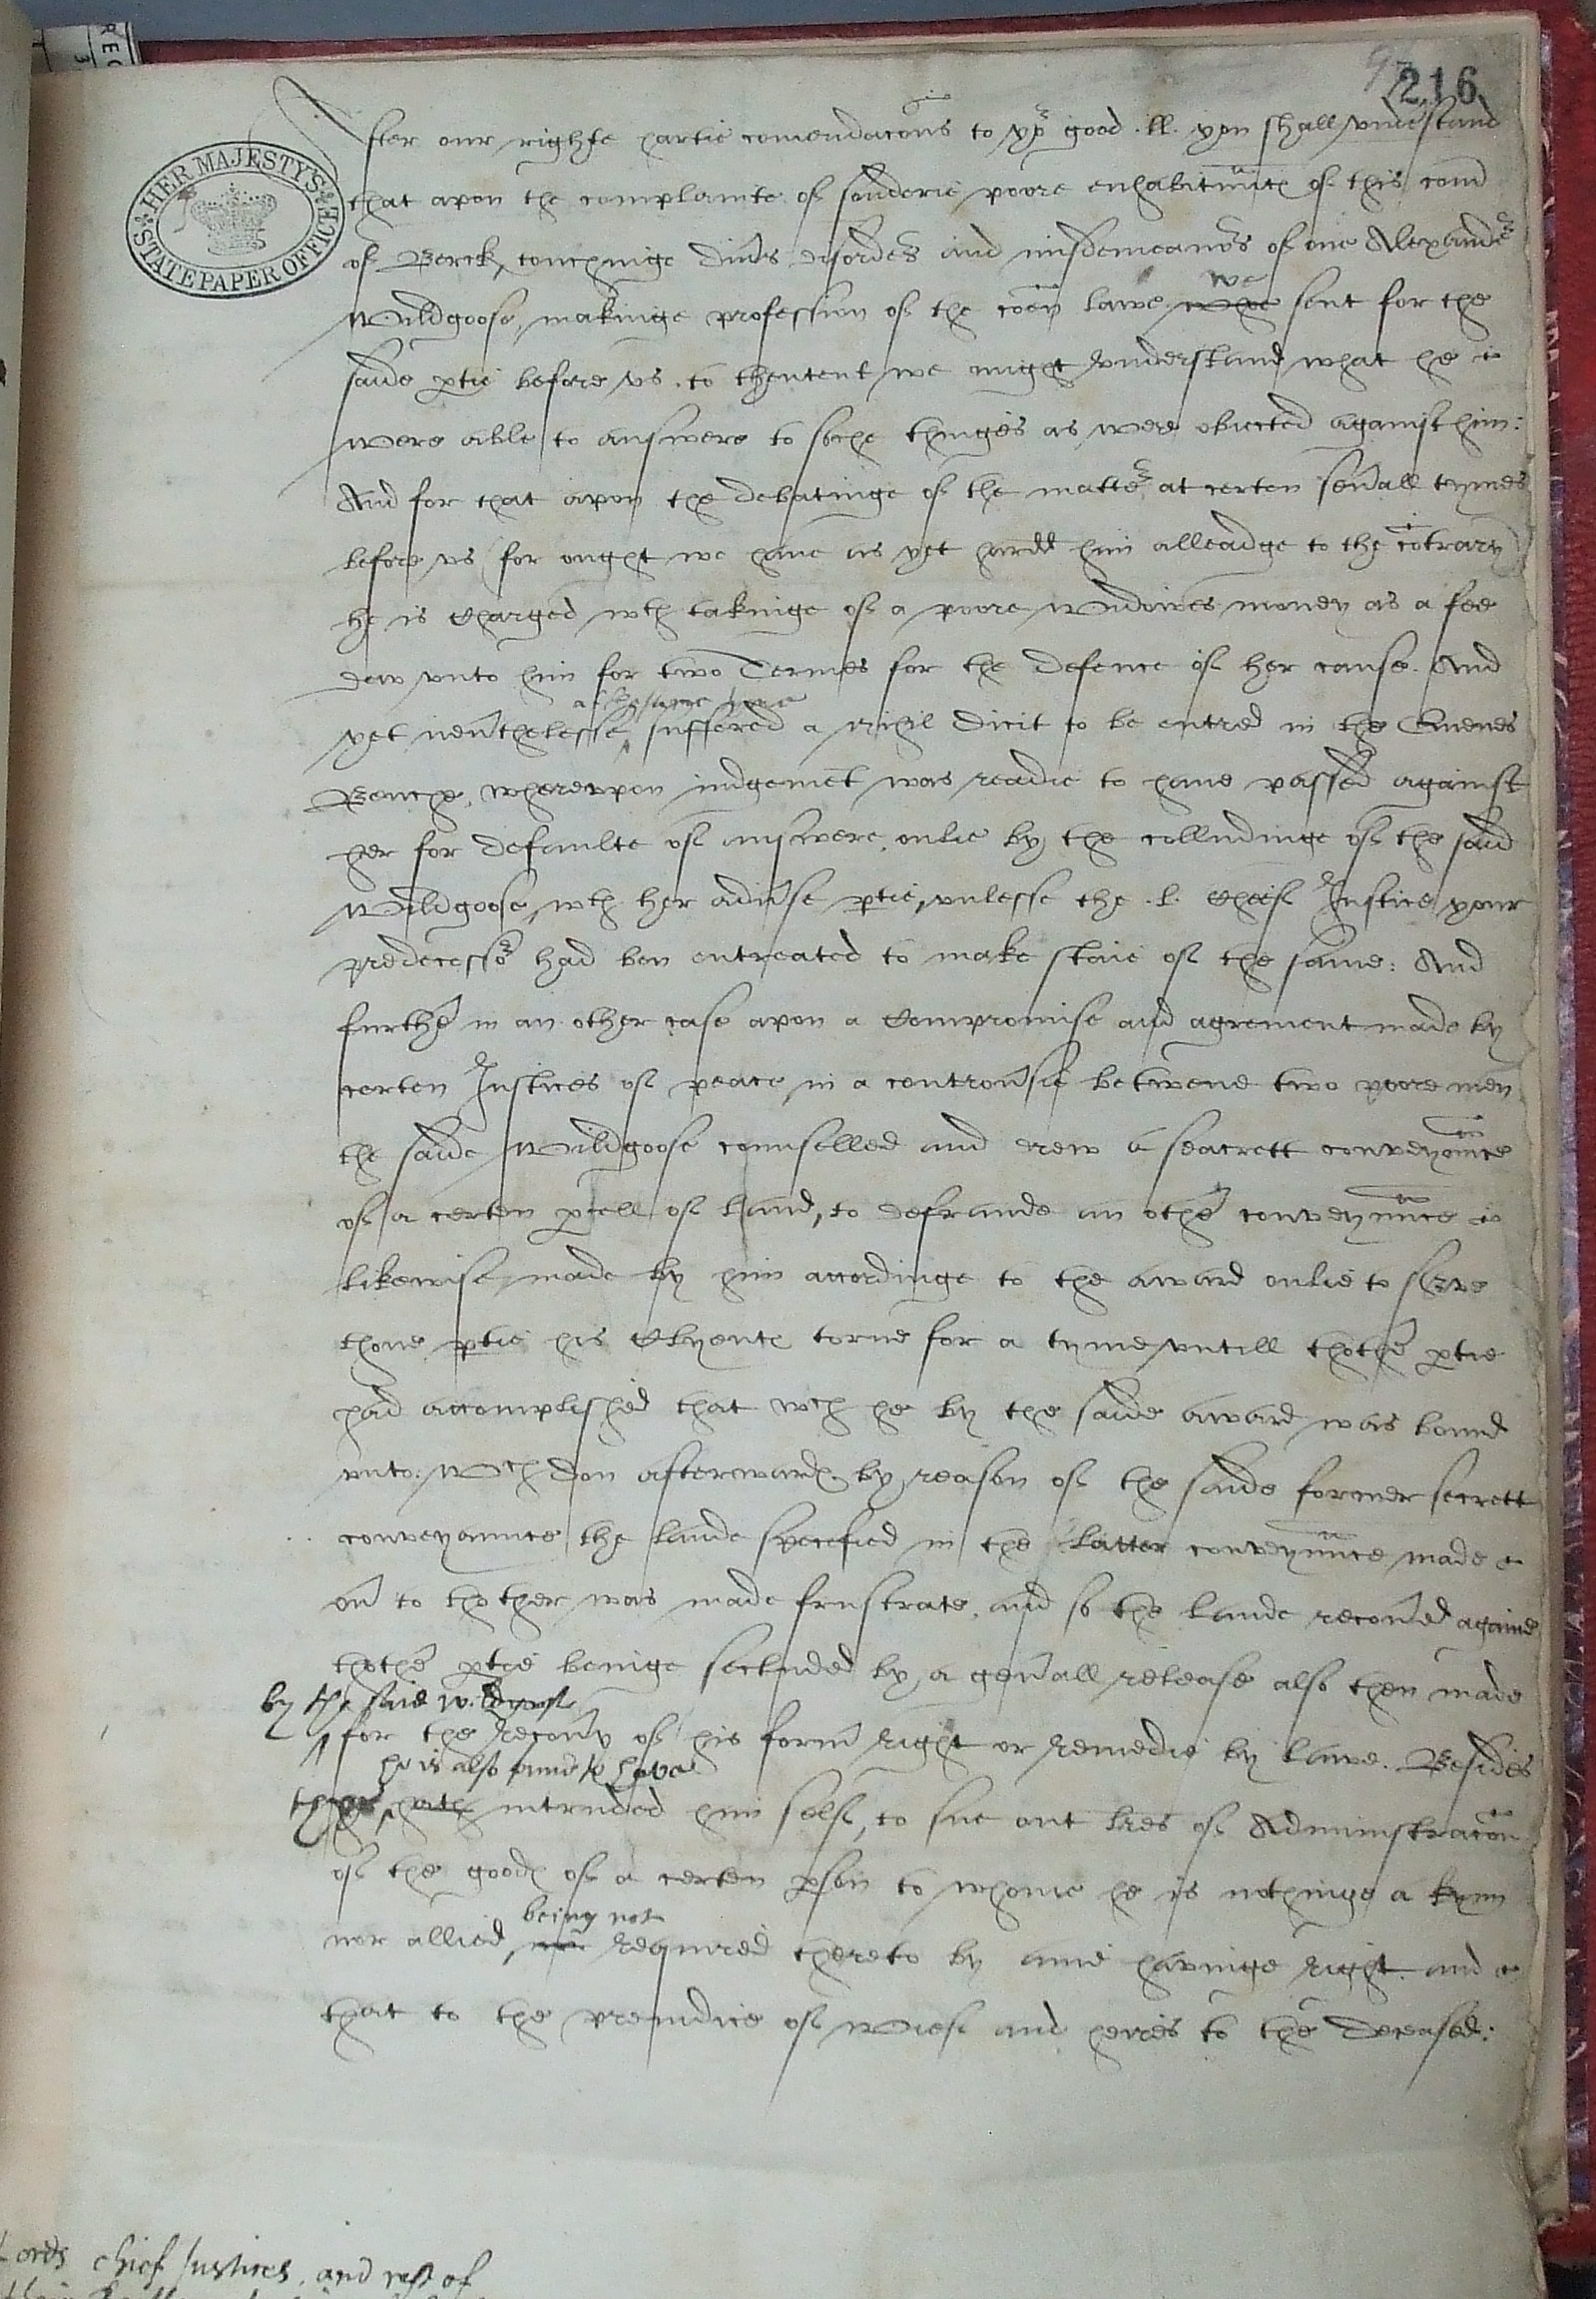 97
216
HER MAJESTY'S STATE PAPER OFFICE
After our righte hartie comendacons to yor good .ll. you shall understand
that apon the complainte of sonderie poore enhabitauntes of this com
of Berck, touchinge divers disorders and misdemeanors of one Alexander
Wildgoose, makinge profession of the coen lawe, we sent for the
saide ptie before us, to thentent we might understand what he
were able to answere to soche thinges as were obiected against him:
And for that apon the debatinge of the matter at certen sevall tymes
before us (for ought we have as yet hardd him alleadge to the cotrary)
he is charged wth takinge of a poore widowes money as a fee
dew unto him for two Termes for the defence of her cause. And
at the same tyme
yet nevthelesse suffered a Nihil dicit to be entred in the Quenes
Benche, whereupon iudgement was readie to have passed against
her for defaulte of answere, onlie by the colludinge of the said
Wildgoose, wth her advse ptie, unlesse the .L. Cheif Justice your
predecessor had ben entreated to make staie of the same: And
further in an other case apon a Compromise and agrement made by
certen Justices of peace, in a controvsie betwene two poore men
the saide Wildgoose counselled and drew a seacrett conveyance
of a certen pcell of land, to defraude an other conveyance
likewise made by him accordinge to the award onlie to serve
thone ptie his Clyentes torne for a tyme, untill thother ptie
had accomplished that wch he by the saide award was bound
unto: Wch don afterwardes by reason of the saide former secrett
conveyaunce the lande specefied in the latter conveyance made
ov to thother was made frustrate, and so the lande recovd againe
thother ptie beinge secluded by a genall release also then made
by the said Wildgose
for the Recovy of his form Right or Remedie by lawe. Besides
he is also found to have
this hath intruded him self, to sue out lres of Administracon
of the goodes of a certen pson to whome he is nothinge a kynn
being not
nor allied, nor Required thereto by anie havinge Right. and
that to the preiudice of Wief and heires to the deceased:
Lords chief Justices, and rest of